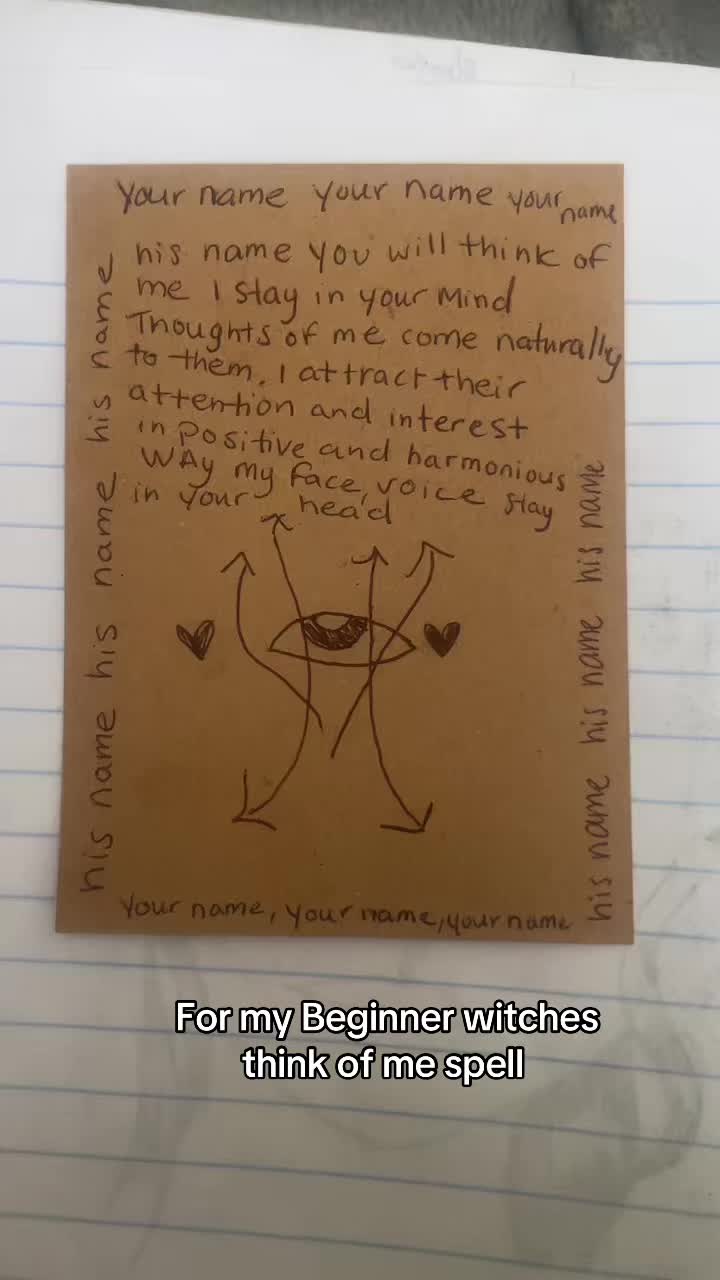 your name your name your name
his name you will think of
me I stay in your Mind
Thoughts of me come naturally
to them. I attract their
attention and interest
in positive and harmonious
way my face, voice stay
in your head
his name his name his name his name
his name his name his name his name
your name, your name, your name
For my Beginner witches
think of me spell